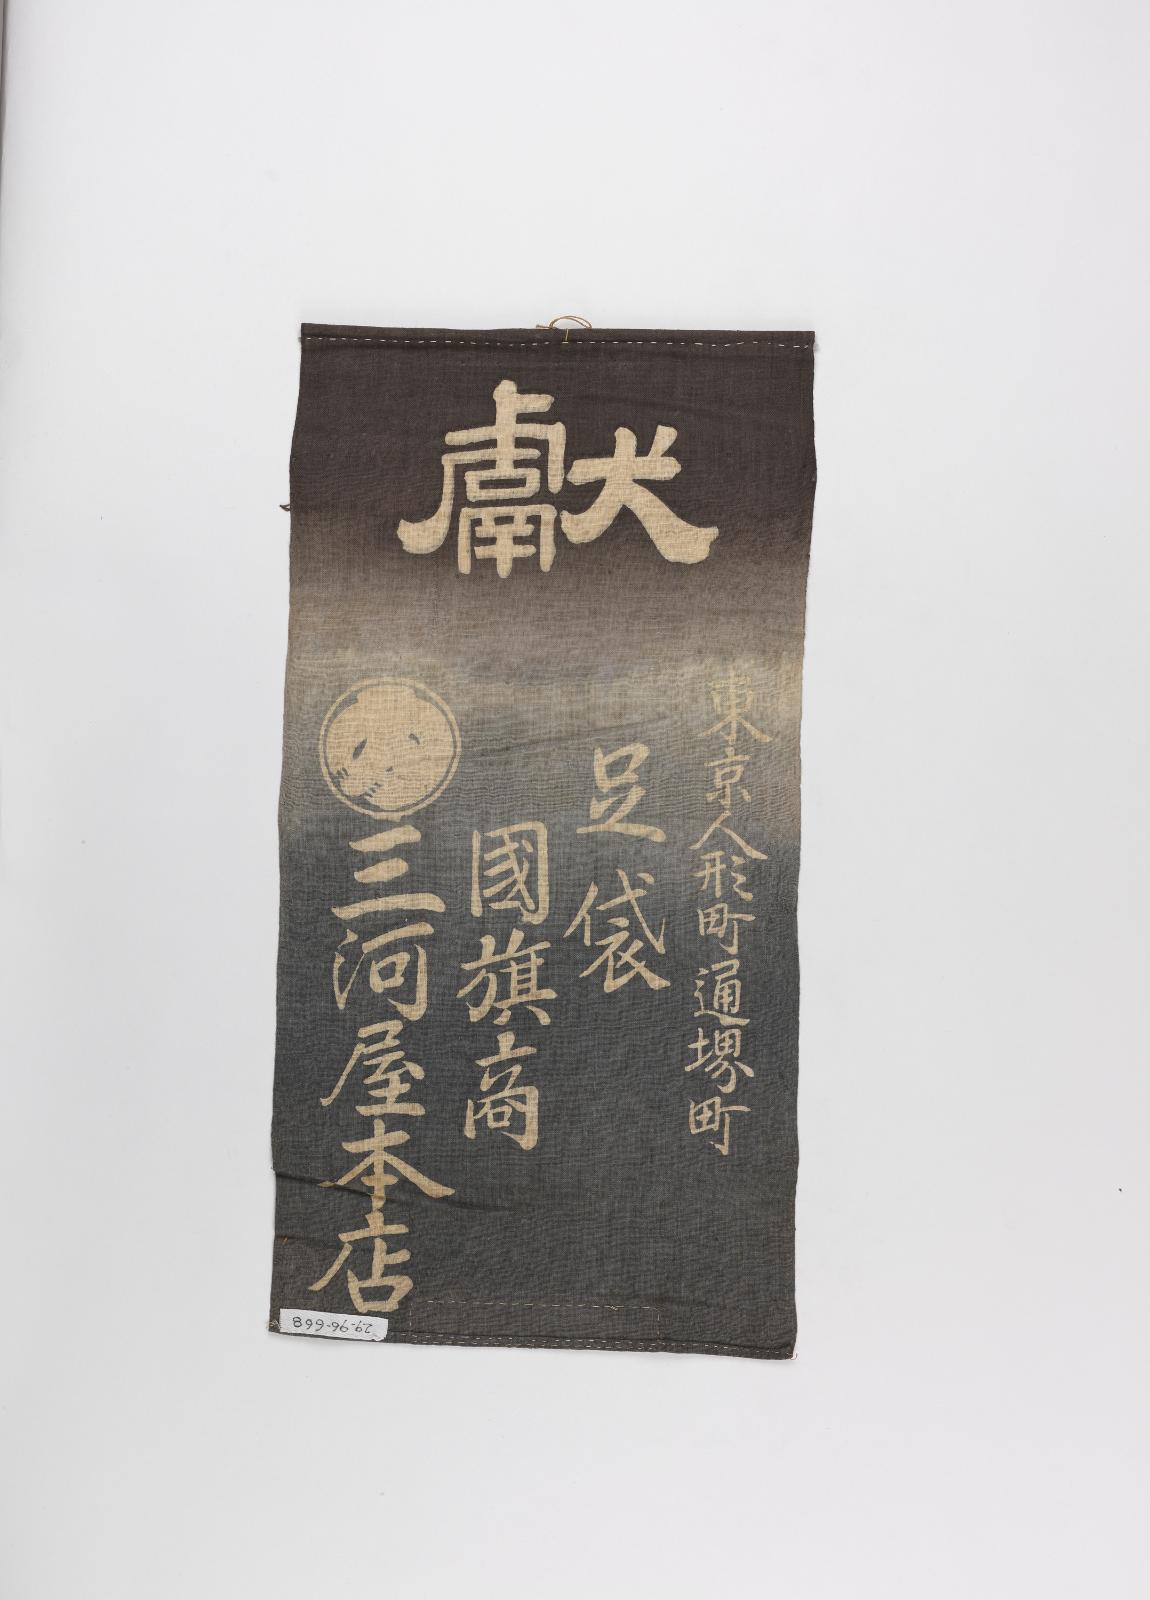 獻
東京人形町通堺町
足袋
國旗商
三河屋本店
29-96-668